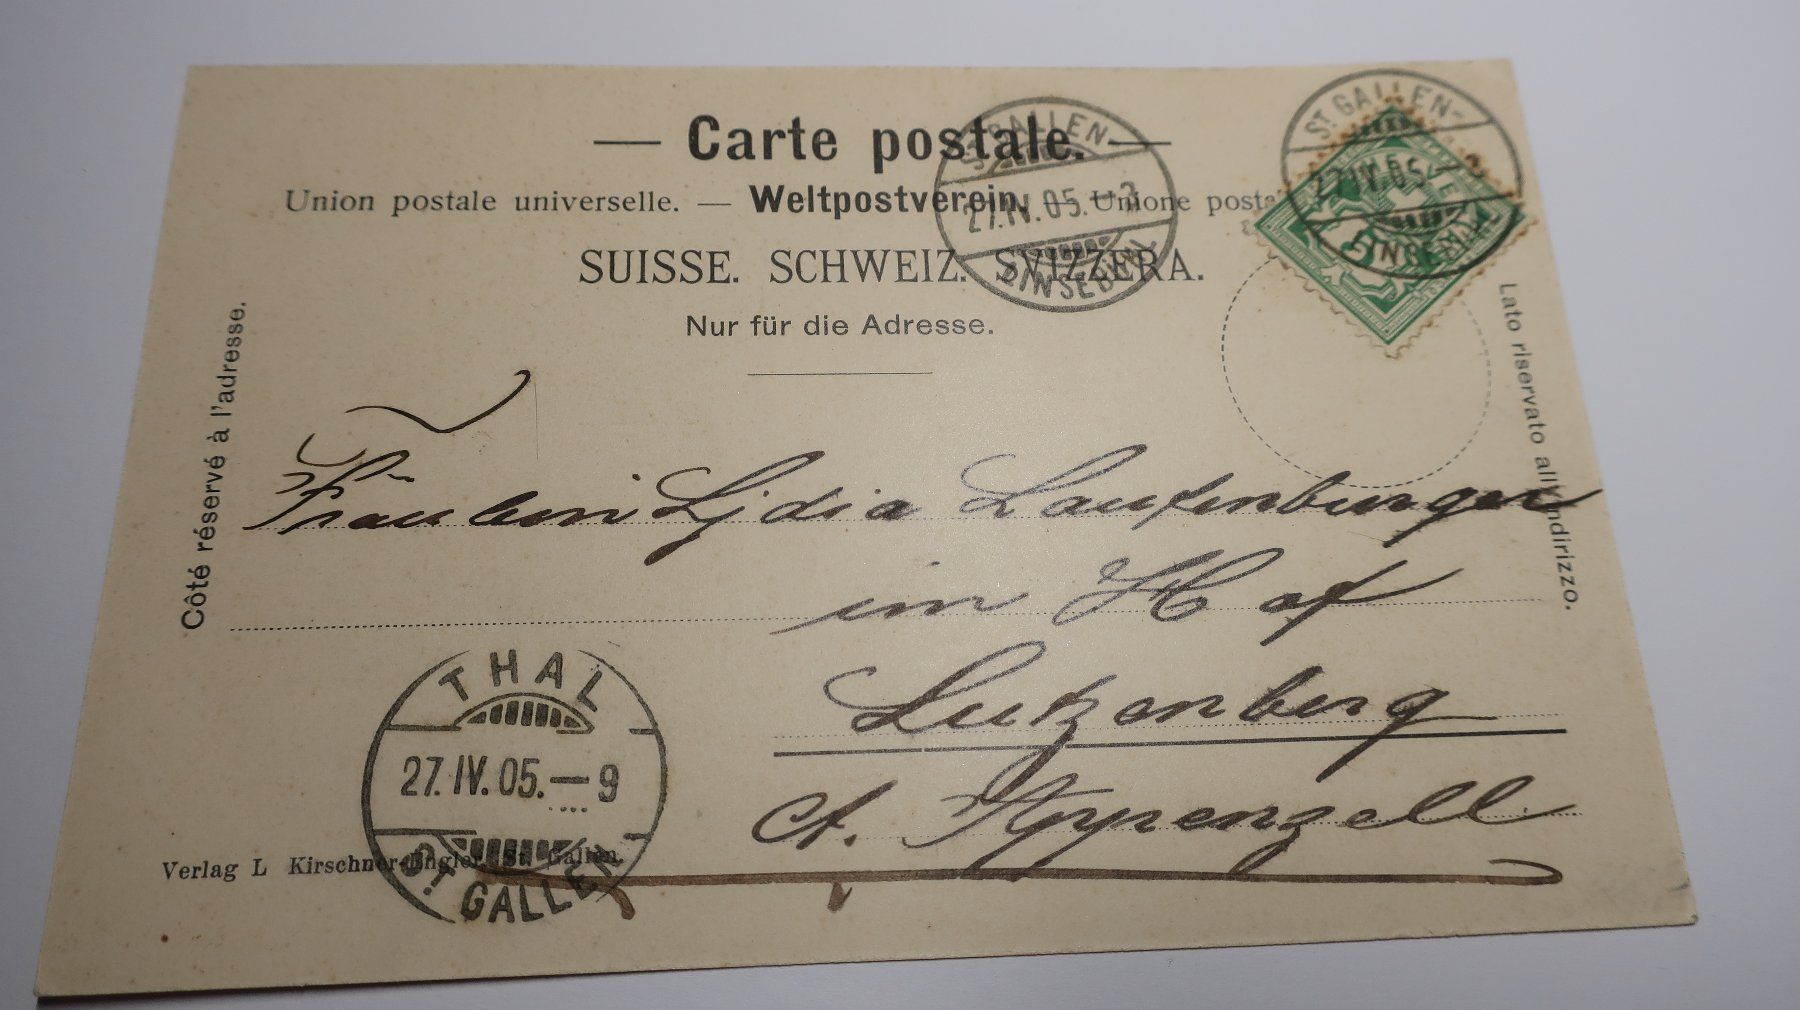 — Carte postale. —
Union postale universelle. — Weltpostverein. — Unione posta
SUISSE. SCHWEIZ. SVIZZERA.
Nur für die Adresse.
Côté réservé à l'adresse.
Lato riservato all'indirizzo.
ST. GALLEN-
27.IV.05.-3
LINSEBÜHL
ST. GALLEN-
27.IV.05
LINSEBÜHL
Fräulein Lydia Laufenburger
im Hof
Lutzenberg
Ct. Appenzell
THAL
27.IV.05.—9
ST. GALLEN
Verlag L Kirschner-Engler, St. Gallen.